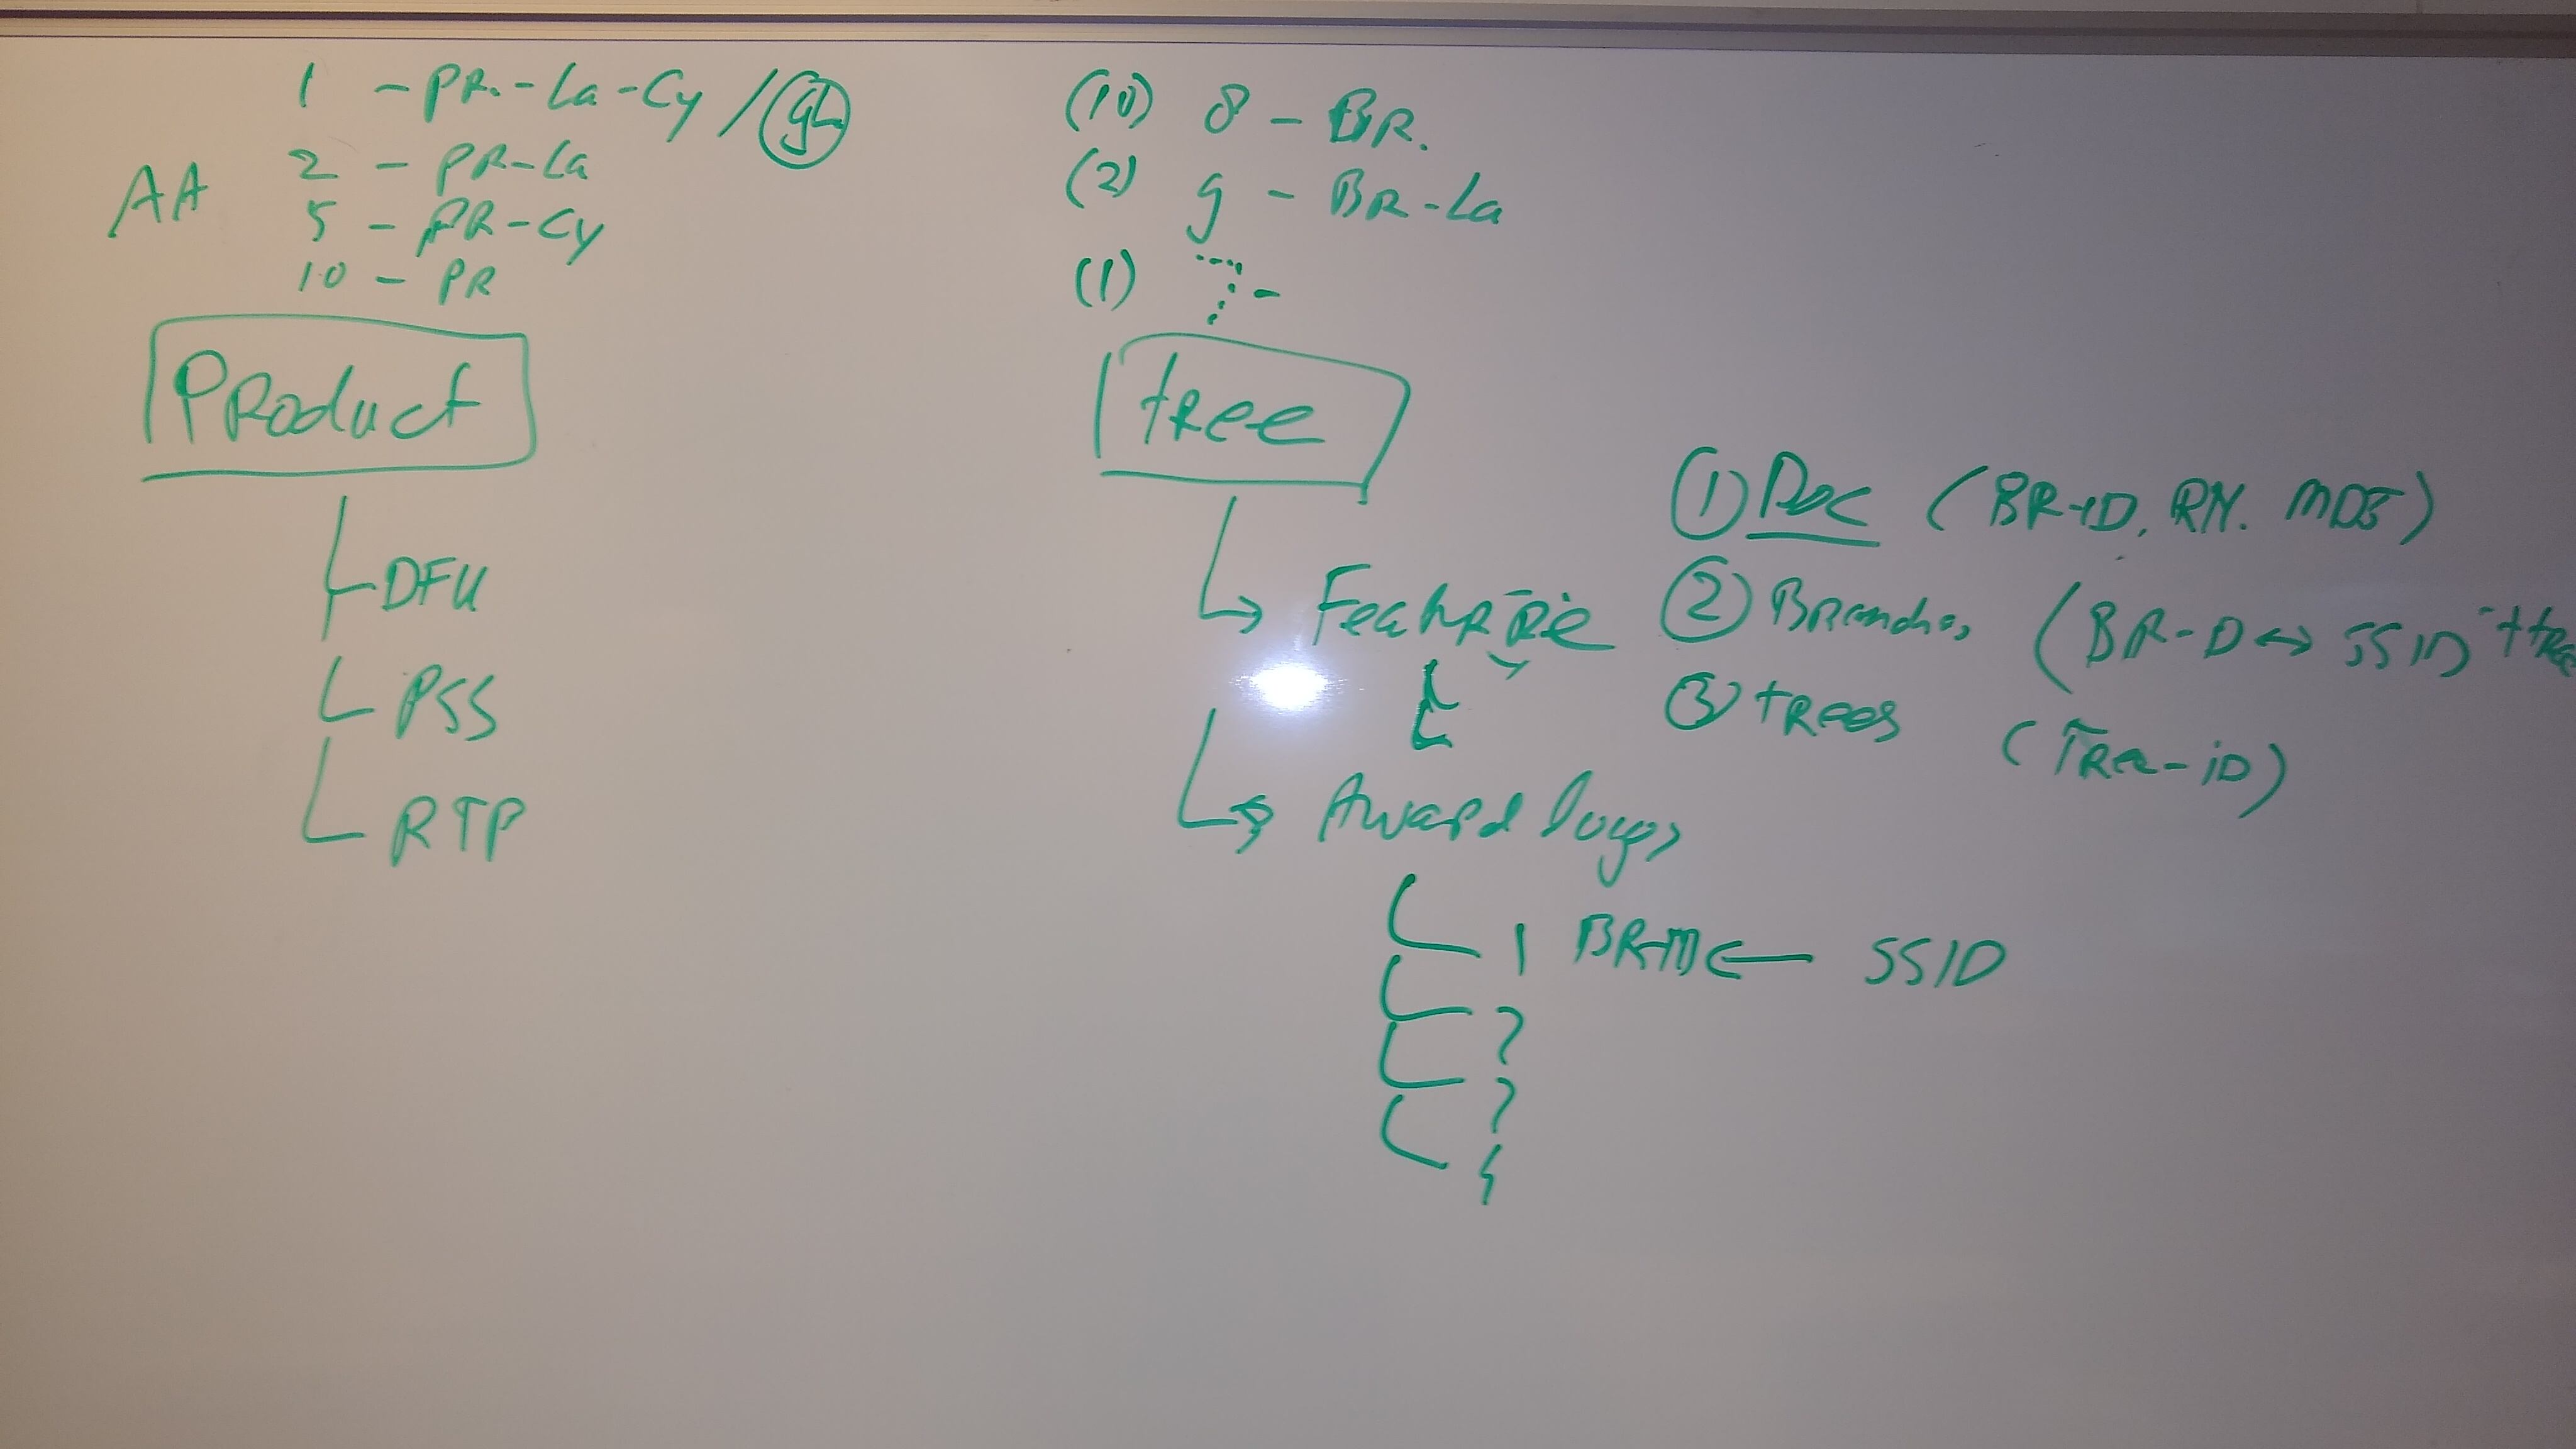 1 - PR.-La-Cy / GL
AA
2 - PR-La
5 - PR-Cy
10 - PR
Product
DFU
PSS
RTP
(10) 8 - BR.
(2) 9 - BR-La
(1) -
tree
Feature
Award logos
1 ← SSID
?
?
① Doc (BR-ID, RN.
② Branches (BR-D ↔ SSID
③ trees (Tree-iD)